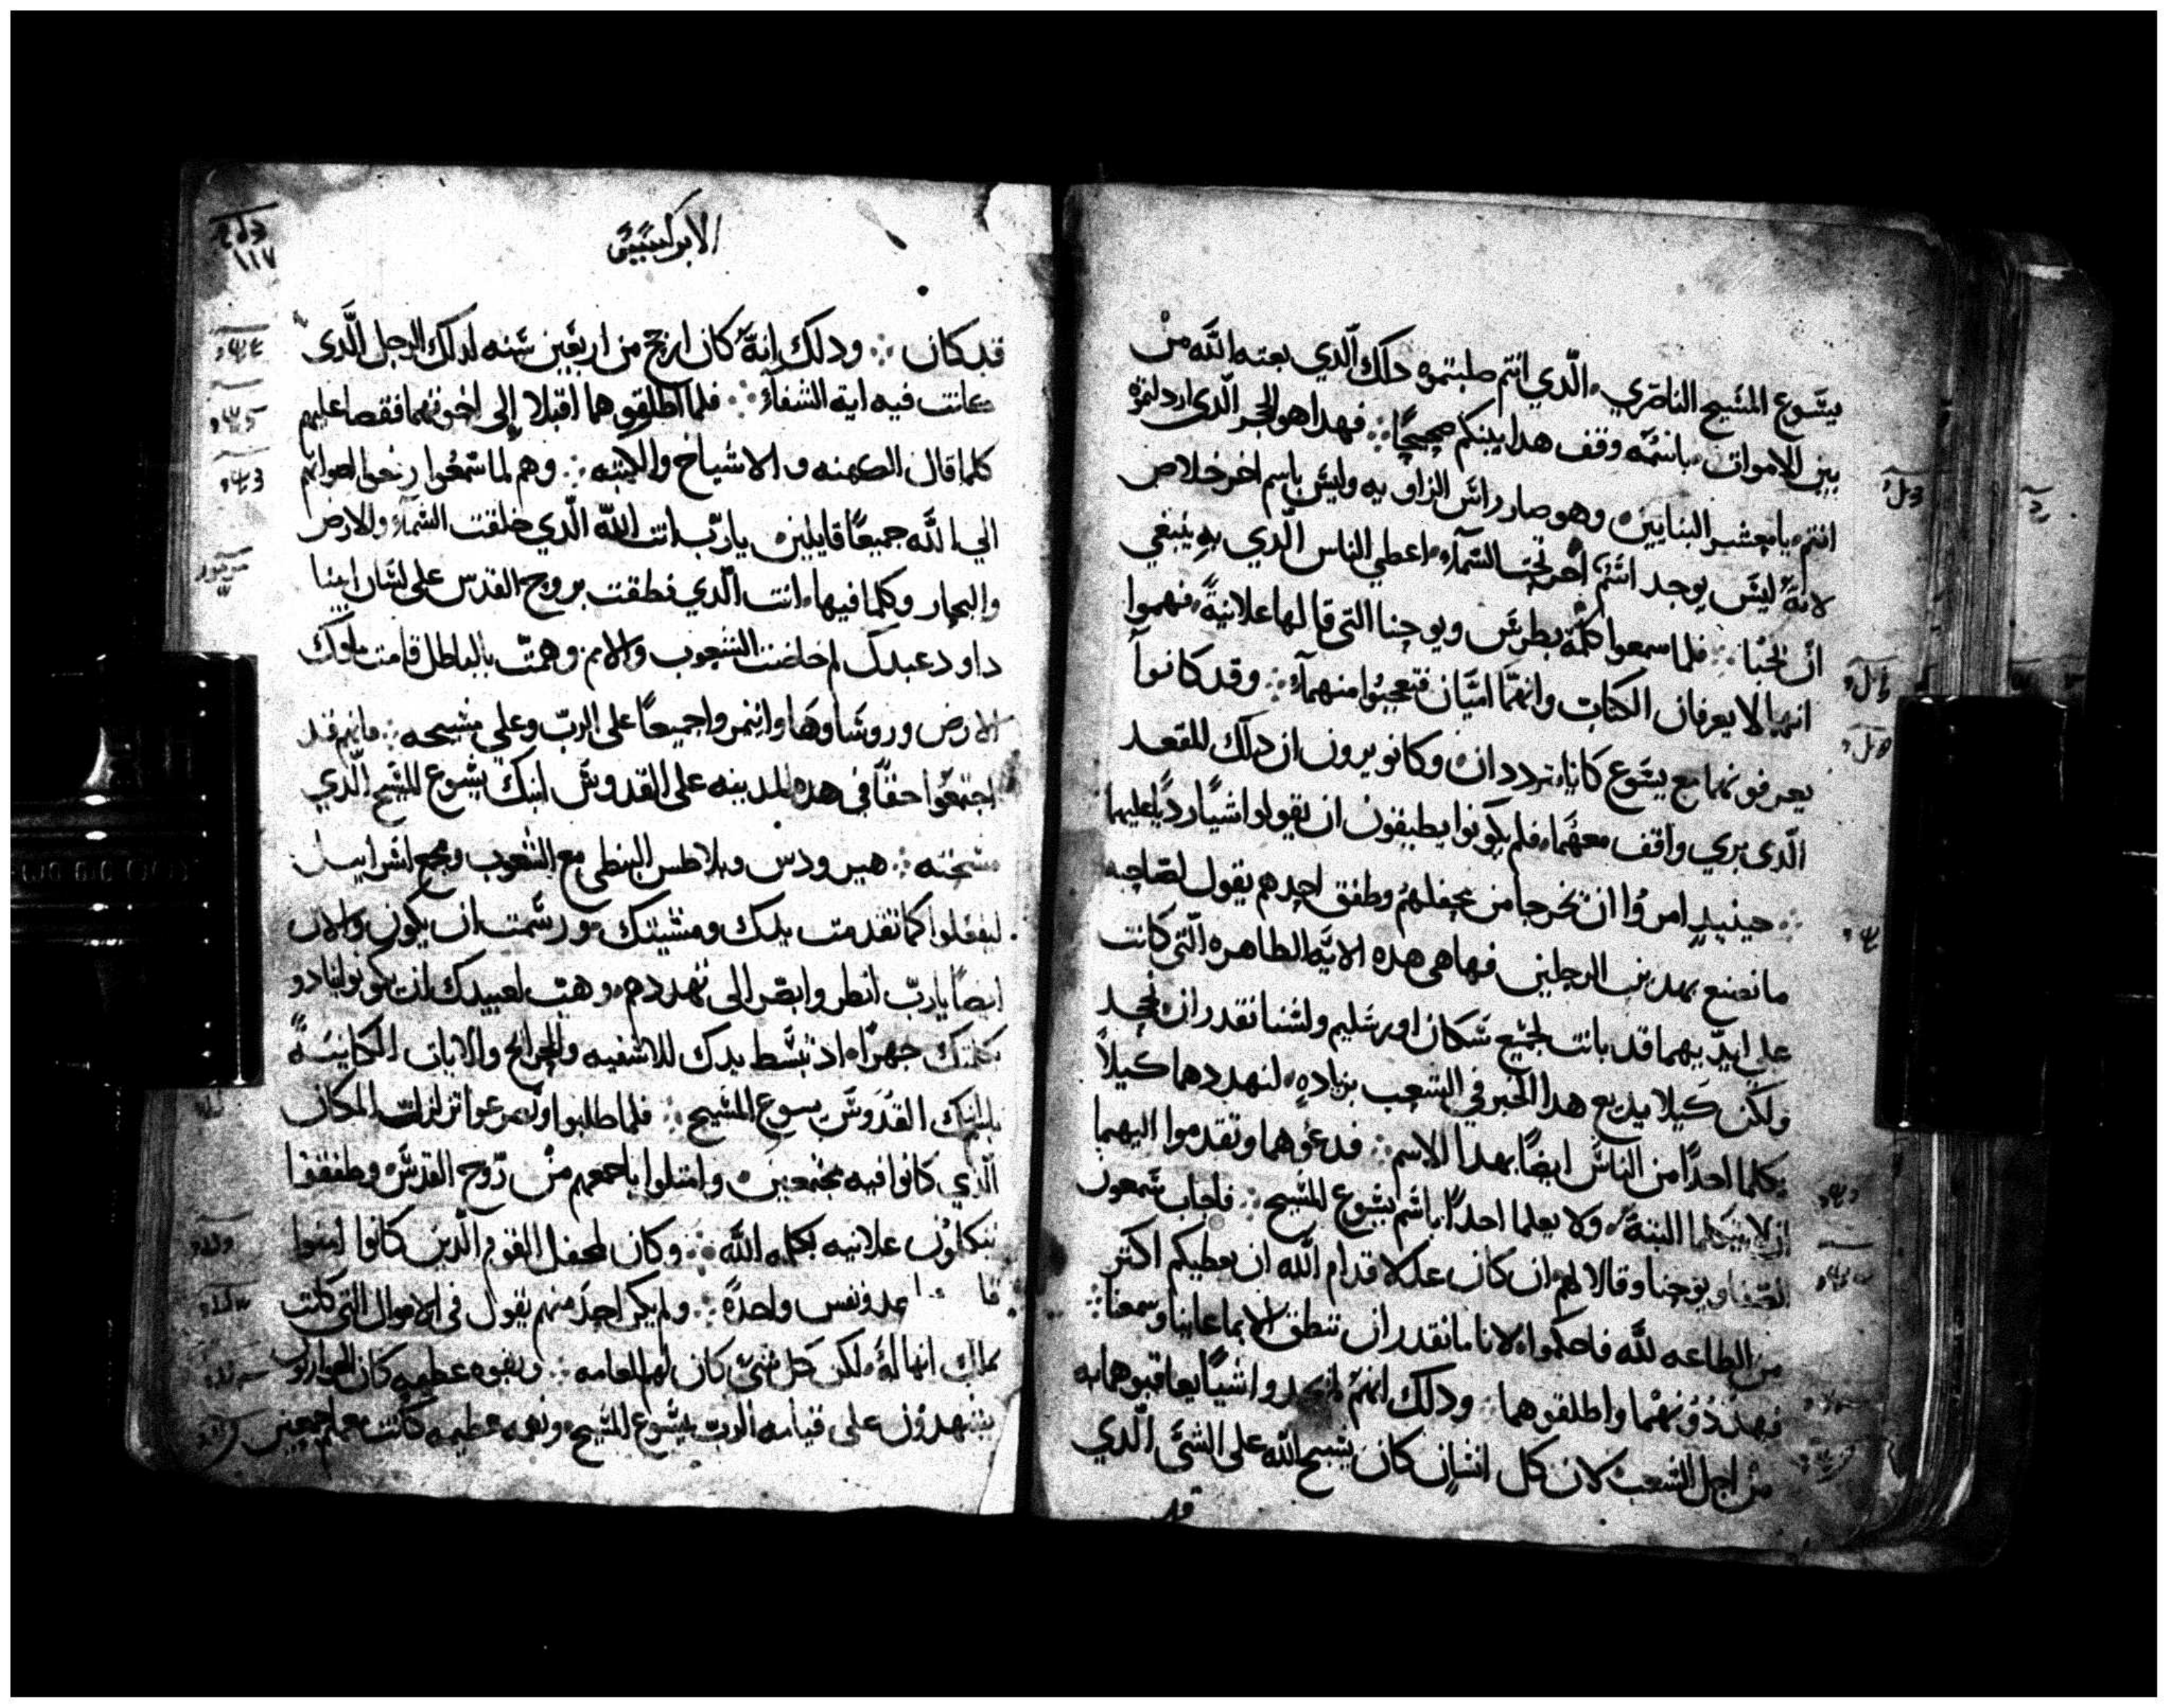 يشوع المسيح الناصري الّدي انتم صلبتموه دلك الّدي بعته اللّه من
بين الاموات باسمه وقف هدا بينكم صحيحًا ∴ فهدا هو الحجر الّدي اردلتموه
انتم يا معشر البنايين وهو صار راس الزاويه وليس باسم اخر خلاص
لانهُ ليس يوجد اسم اخر تحت السمآء اعطي الناس الّدي به ينبغي
ان نحيا ∴ فلما سمعوا كلمة بطرس ويوحنا التي قالها علانيةً فهموا
انهما لا يعرفان الكتاب وانهما اميّان فتعجبوا منهما ∴ وقد كانوا
يعرفونهما مع يشوع كانا يترددان وكانو يرون ان دلك المقعد
الّدي بري واقف معهما فلم يكونوا يطيقون ان يقولوا شيًا رديًا عليهما
∴ حينيدٍ امروا ان تخرجا من محفلهم وطفق احدهم يقول لصاحبه
ما نصنع بهدين الرجلين فها هي هده الايّه الظاهره الّتي كانت
على ايديهما قد بانت لجميع سكان اورشليم ولسنا نقدر ان نجحد
ولكن كيلا يديع هدا الخبر في الشعب بزياده لنهددهما كيلاً
يكلما احدًا من الناس ايضًا بهدا الاسم ∴ فدعوهما وتقدموا اليهما
ان لا يتكلما البتة ولا يعلما احدًا باسم يشوع المسيح ∴ فاجاب شمعون
الصفا ويوحنا وقالا لهم ان كان عدلا قدام اللّه ان نعطيكم اكتر
من الطاعه للّه فاحكموا لانا ما نقدر ان ننطق الا بما عاينا وسمعنا ∴
فهددونهما واطلقوهما ∴ ودلك انهم لم يجدوا شيًا يعاقبوهما به
من اجل الشعب لان كل انسان كان يسبح اللّه على الشئ الّدي
قد
الابركسيس
١١٧
قد كان ∴ ودلك انهُ كان ارجح من اربعين سنه لدلك الرجل الّدي
كانت فيه اية الشفاء ∴ فلما اطلقوهما اقبلا إلى اخوتهما فقصا عليهم
كلما قال الكهنه والاشياخ والايته ∴ وهم لما سمعوا رفعوا اصواتهم
الي اللّه جميعًا قايلين يا ربّ انت اللّه الّدي خلقت السمآء والارض
والبحار وكلما فيها انت الّدي نطقت بروح القدس على لسان ابينا
داود عبدك لم خاضت الشعوب والامم وهمّت بالباطل قامت ملوك
الارض وروساوها وايتمروا جميعًا على الربّ وعلي مسيحه ∴ فانهم قد
اجتمعوا حقًا في هده المدينه على القدوس ابنك يشوع المسيح الّدي
مسحته ∴ هيرودس وبلاطس البنطي مع الشعوب ومجمع اسراييل
ليفعلوا كما تقدمت يدك ومشيتك ورسمت ان يكون والان
ايضًا يا ربّ انظر وابصر الى تهددهم وهب لعبيدك ان يكونو ينادو
بكلمتك جهرًا اد تبسط يدك للاشفيه والجرايح والايات الكاينةً
بابنك القدوس يسوع المسيح ∴ فلما طلبوا وتضرعوا تزلزلت المكان
الّدي كانوا فيه مجتمعين وامتلوا باجمعهم من روح القدس وطفقوا
يتكلون علانيه بكلمه اللّه ∴ وكان لمحفل القوم الّدين كانوا امنوا
ونفس واحدة ∴ ولم يكن احد منهم يقول في الاموال التي كانت
انها له ولكن كل شئ كان لهم للعامه ∴ وبقوه عظيمه كان الحواريون
يشهدون على قيامه الربّ يشوع المسيح ونعمه عظيمه كانت معهم اجمعين